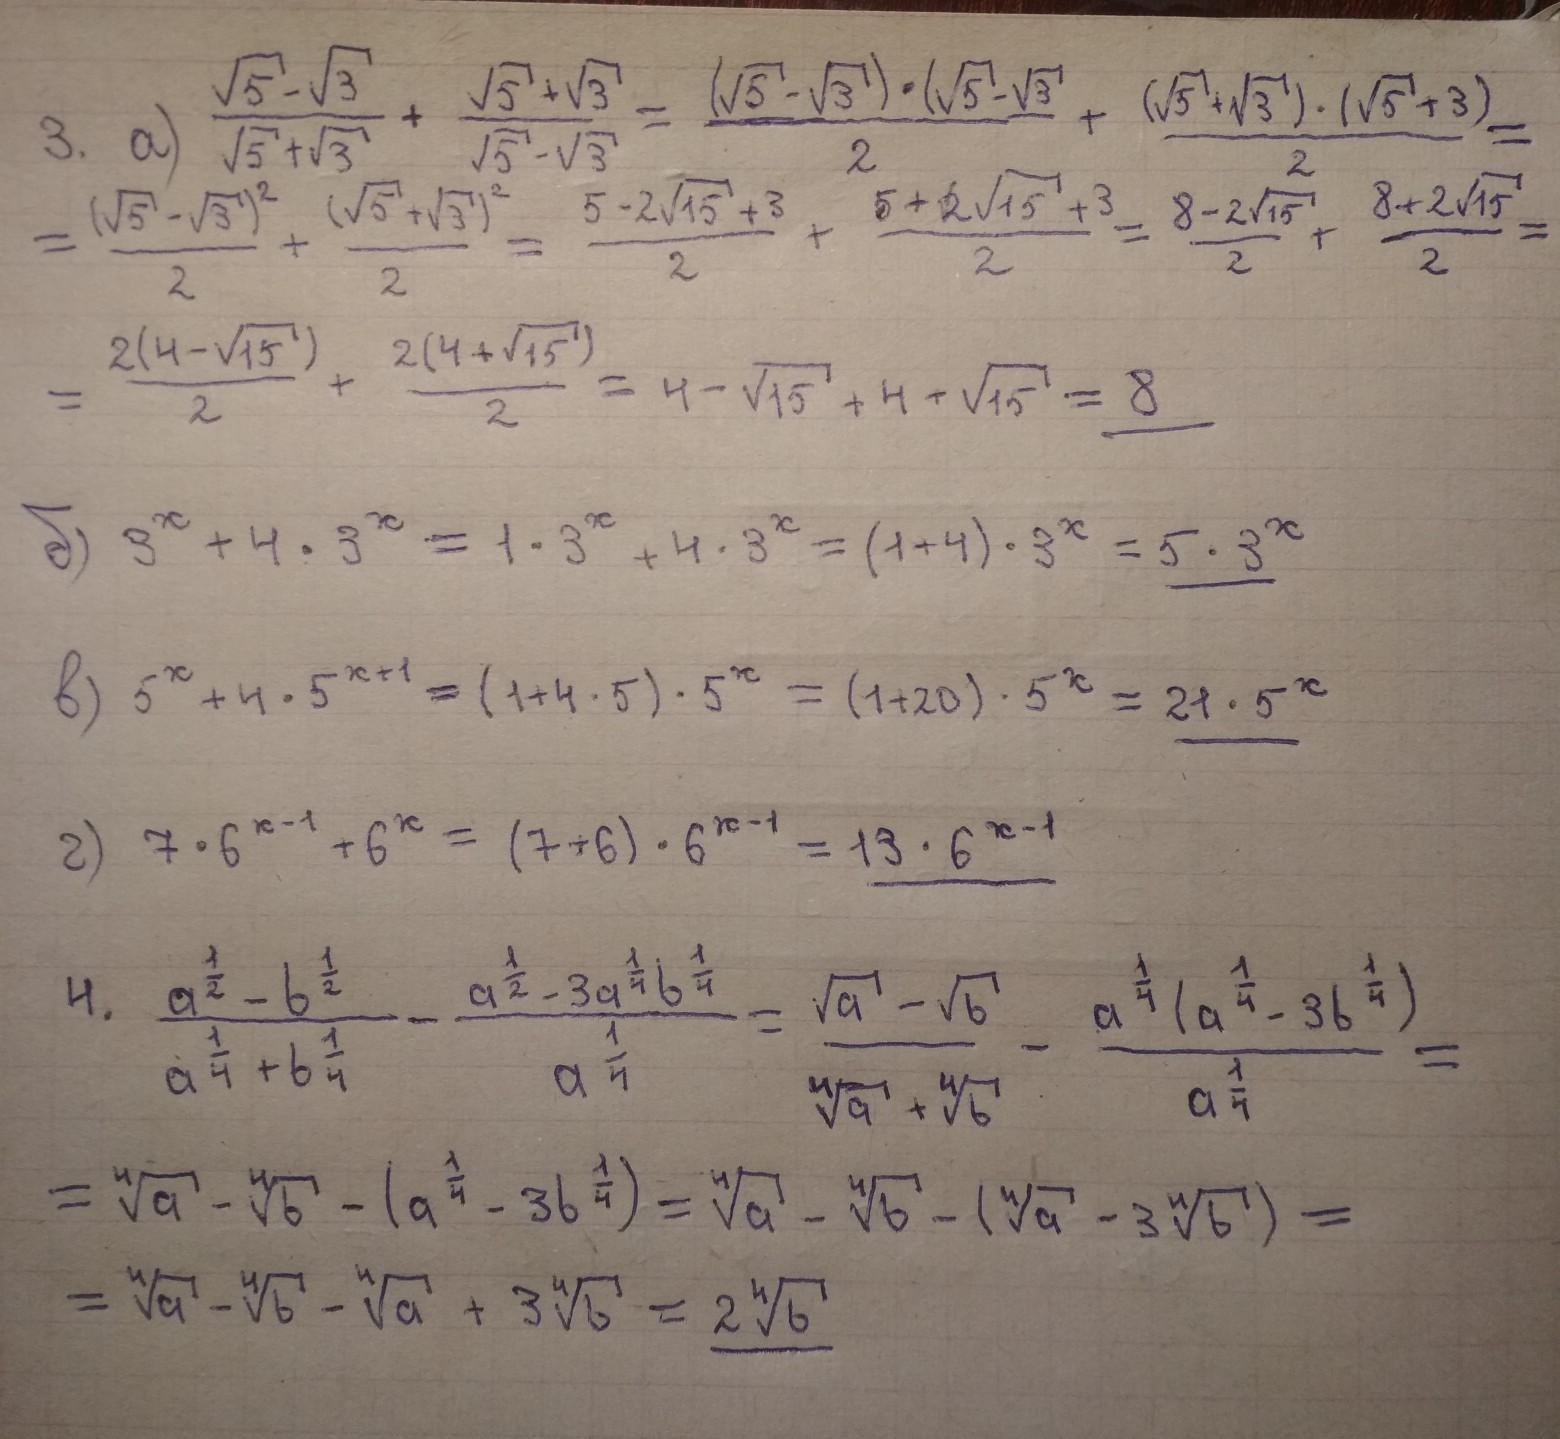 3. а) (√5-√3)/(√5+√3) + (√5+√3)/(√5-√3) = ((√5-√3)·(√5-√3)/2 + ((√5+√3)·(√5+3))/2 =
= (√5-√3)²/2 + (√5+√3)²/2 = (5-2√15+3)/2 + (5+2√15+3)/2 = (8-2√15)/2 + (8+2√15)/2 =
= 2(4-√15)/2 + 2(4+√15)/2 = 4-√15+4+√15 = 8
б) 3^x + 4·3^x = 1·3^x + 4·3^x = (1+4)·3^x = 5·3^x
в) 5^x + 4·5^(x+1) = (1+4·5)·5^x = (1+20)·5^x = 21·5^x
г) 7·6^(x-1) + 6^x = (7+6)·6^(x-1) = 13·6^(x-1)
4. (a^(1/2) - b^(1/2))/(a^(1/4) + b^(1/4)) - (a^(1/2) - 3a^(1/4)b^(1/4))/a^(1/4) = (√a - √b)/(⁴√a + ⁴√b) - a^(1/4)(a^(1/4) - 3b^(1/4))/a^(1/4) =
= ⁴√a - ⁴√b - (a^(1/4) - 3b^(1/4)) = ⁴√a - ⁴√b - (⁴√a - 3⁴√b) =
= ⁴√a - ⁴√b - ⁴√a + 3⁴√b = 2⁴√b